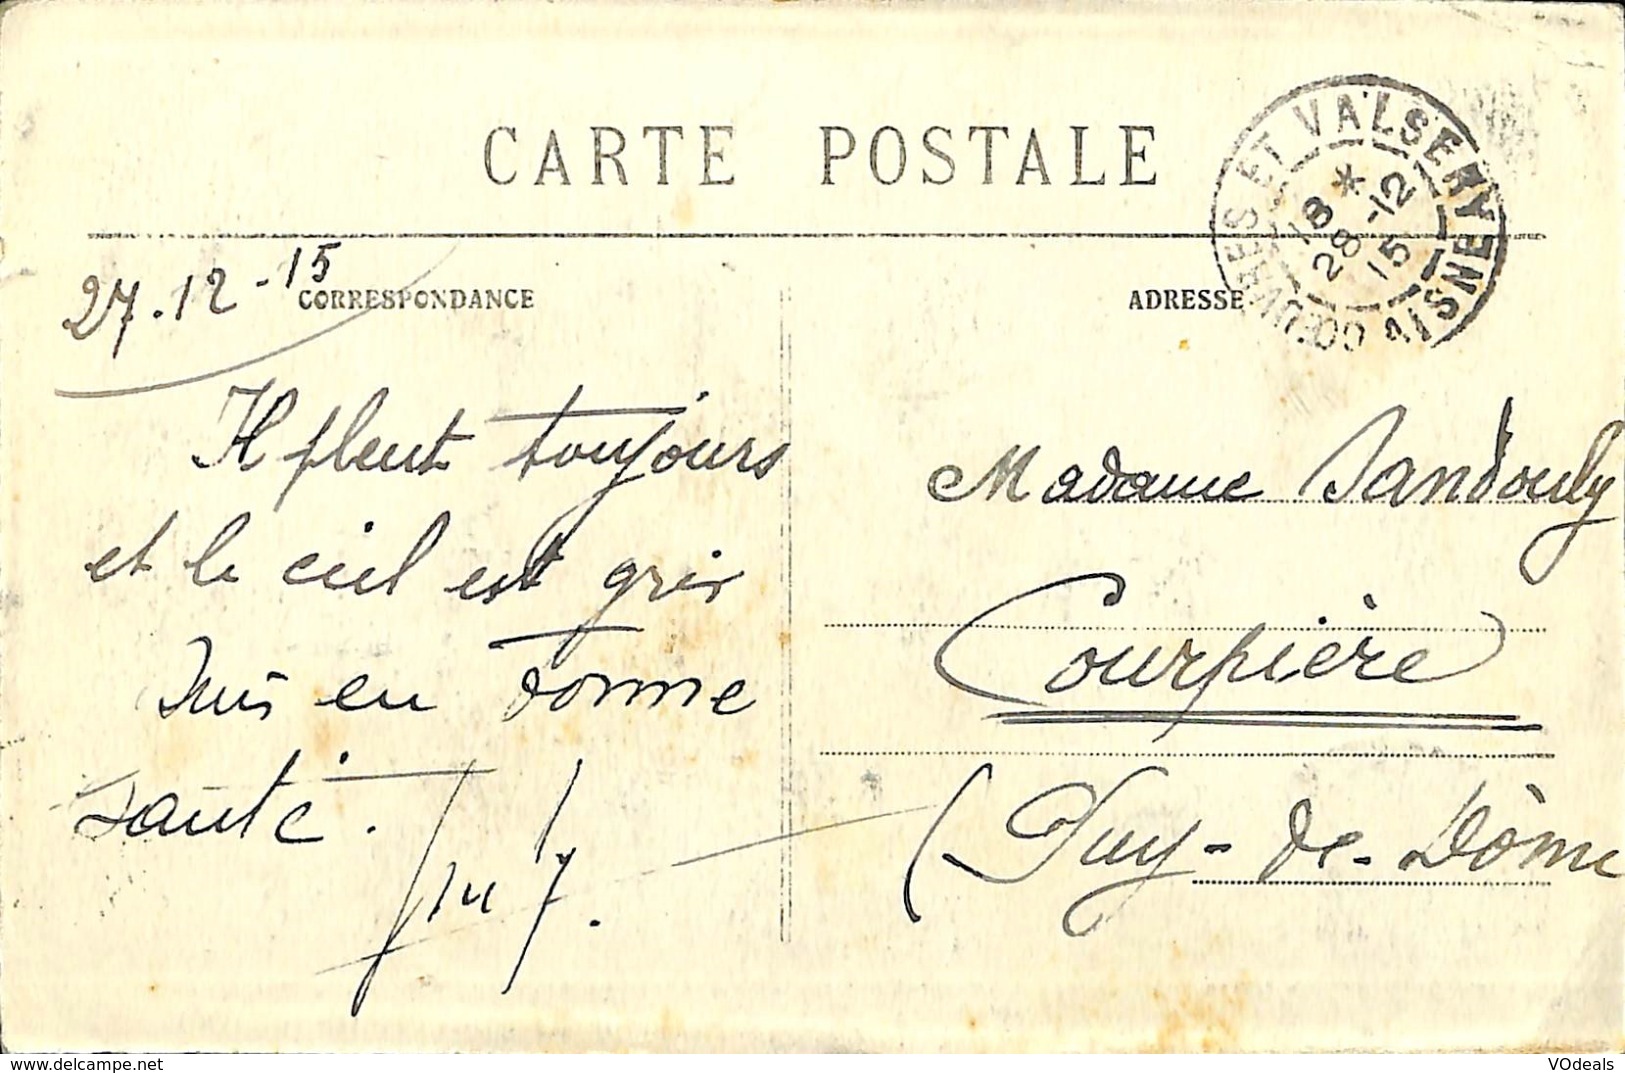 CARTE POSTALE
CŒUVRES ET VALSERY AISNE
18 *
28-12
15
27.12-15
CORRESPONDANCE
ADRESSE
Il pleut toujours
et le ciel est gris
suis en bonne
santé.
Madame Sandouly
Courpière
(Puy-de-Dôme
delcampe.net
VOdeals